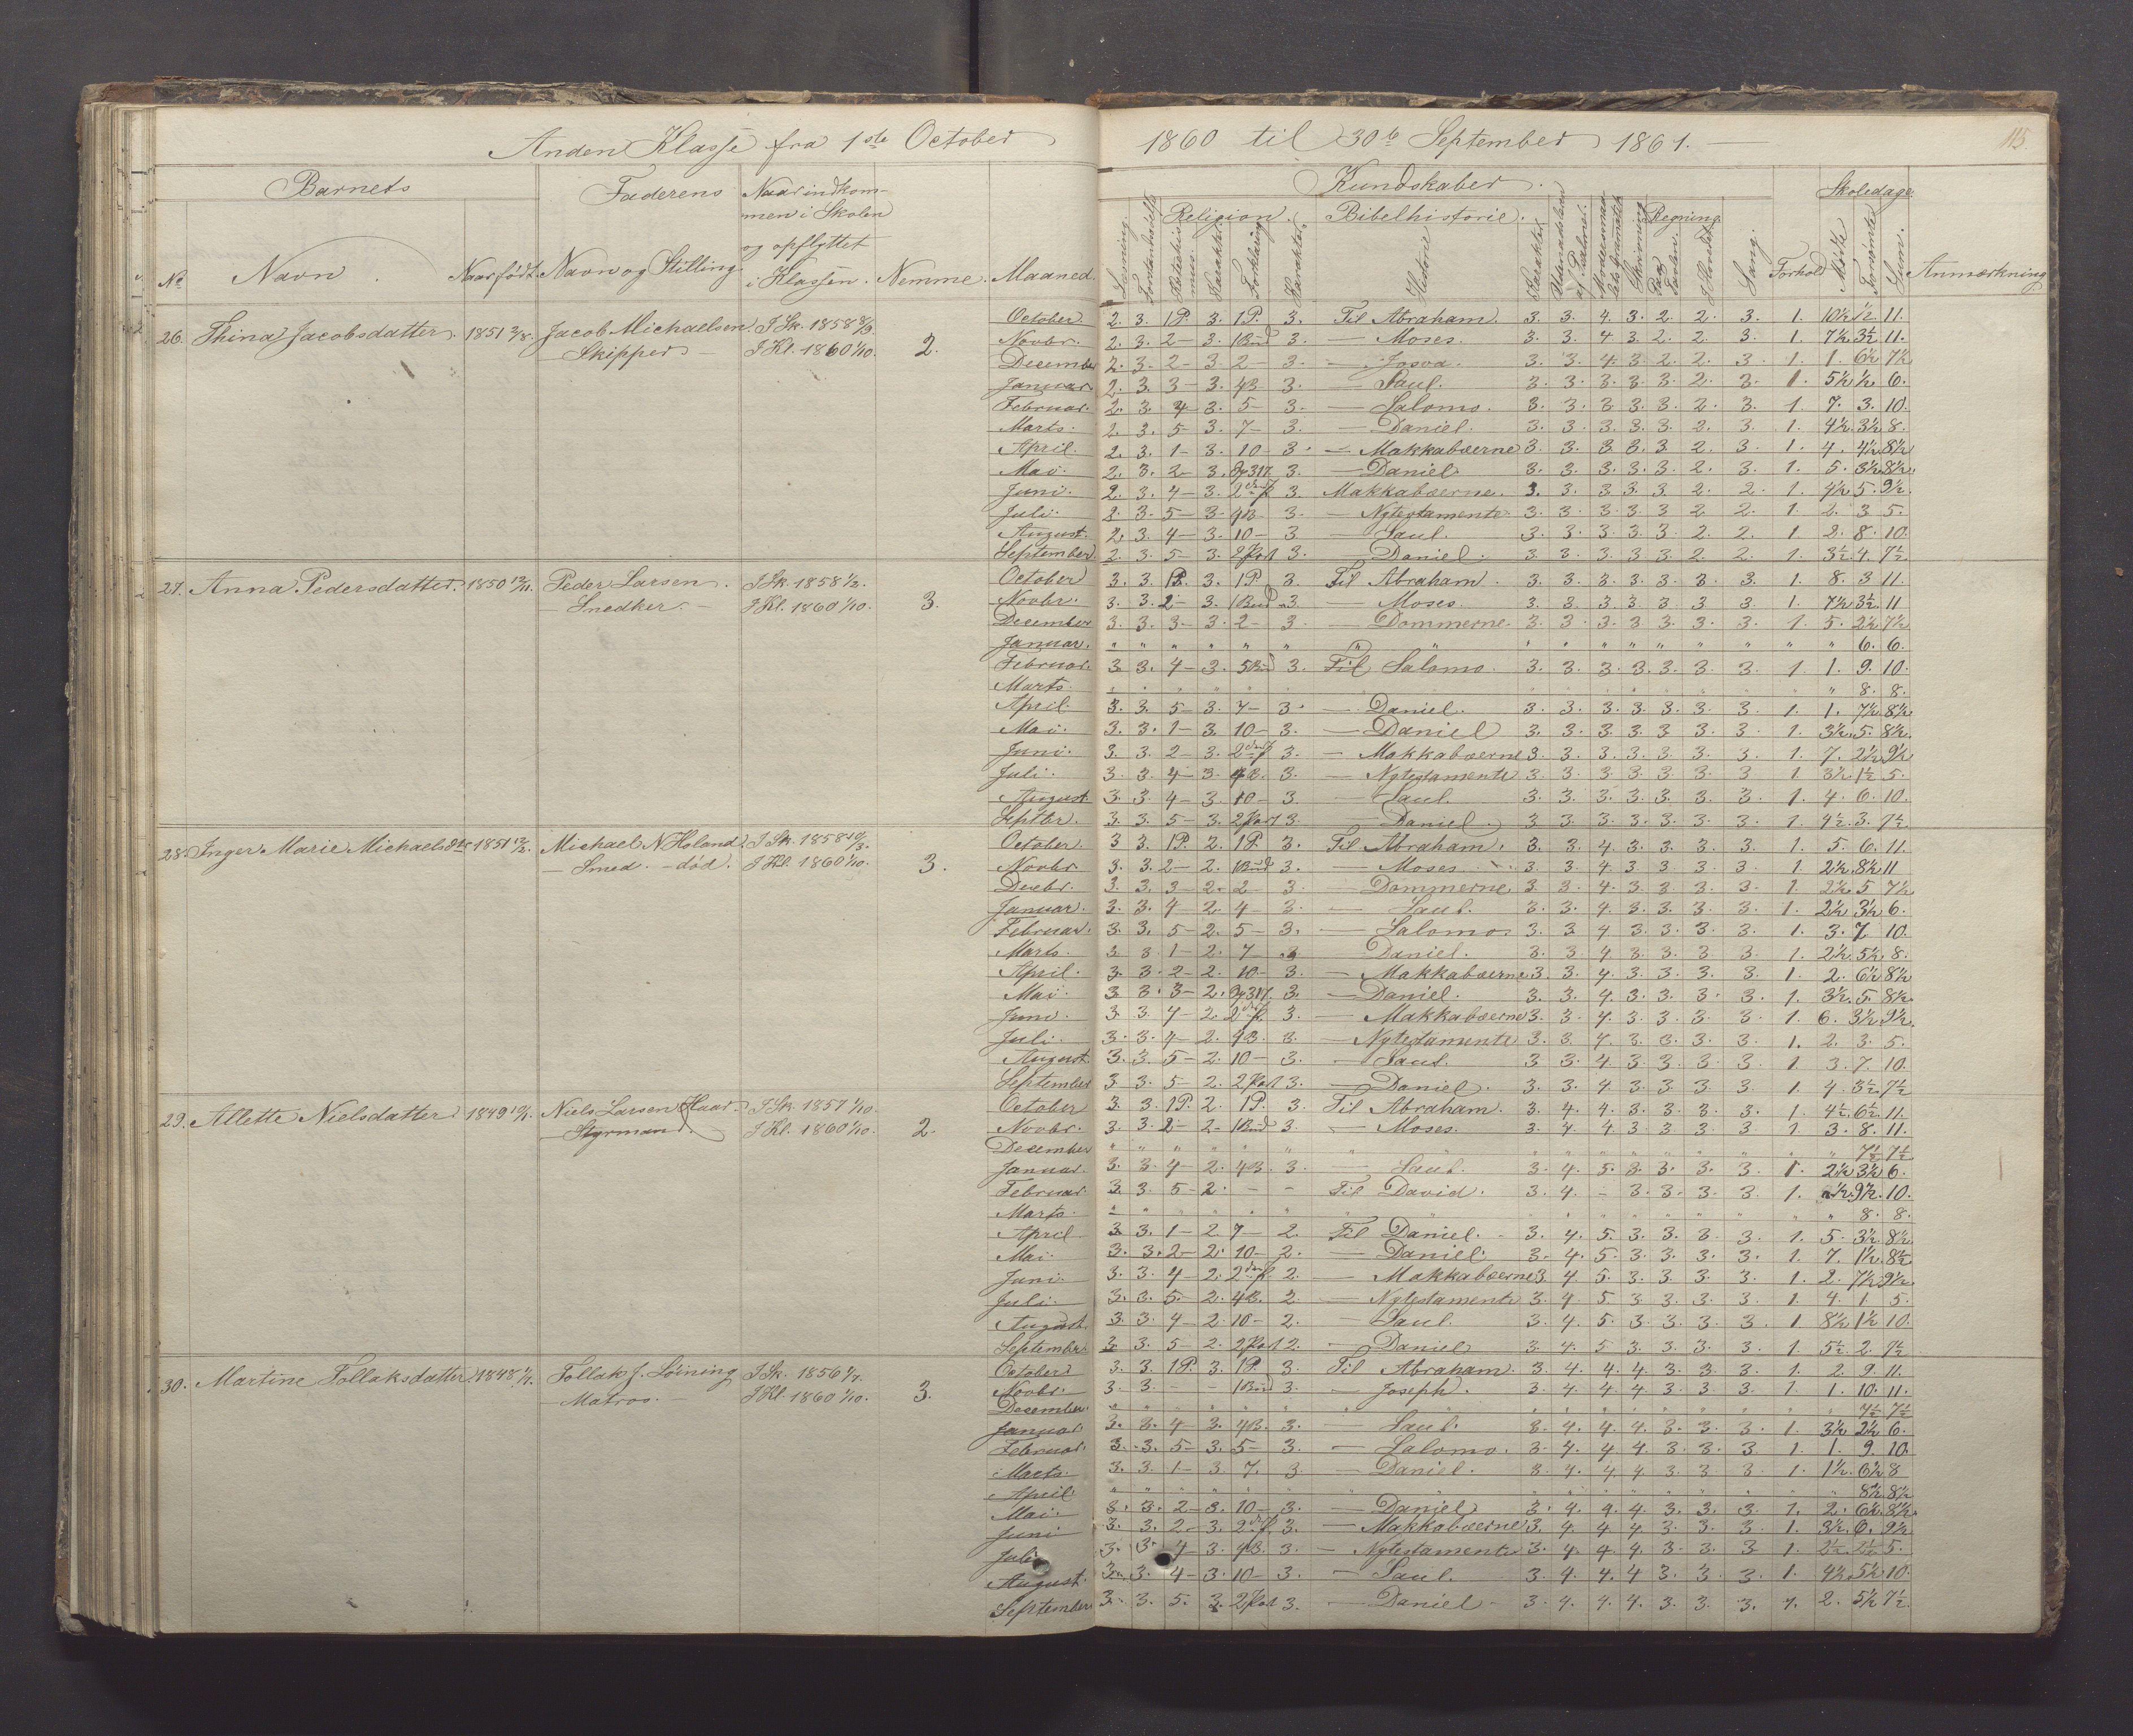 Anden Klasse fra 1ste October 1860 til 30te September 1861.
115.
Barnets Faderens Naar indkommen i Skolen og opflyttet i Klassen. Nemme. Maaned. Kundskaber. Skoledage
Religion. Bibelhistorie. Regning.
No Navn. Naar født. Navn og Stilling Læsning. Karakter. Forklaring Karakter. Historie Karakter. Skrivning Sang. Forhold Mødte Forsømte Sum. Anmærkning
26. Thina Jacobsdatter. 1851 2/8. Jacob Michaelsen I Sk. 1858 8/9
— Skipper — I Kl. 1860 1/10. 2.
October 2. 3. 1P. 3. 1P. 3. Til Abraham. 3. 3. 4. 3. 2. 2. 3. 1. 10½ ½ 11.
Novbr. 2. 3. 2- 3. 1Bud 3. — Moses. 3. 3. 4 3. 2 2. 3. 1. 7½ 3½ 11.
December 2. 3. 2- 3. 2- 3. — Josva. 3. 3. 4. 3. 2. 2. 3. 1. 1. 6½ 7½
Januar. 2. 3. 3- 3. 4B 3. — Saul. 3. 3. 3. 3. 3. 2. 3. 1. 5½ ½ 6.
Februar. 2. 3. 4- 3. 5- 3. — Salomo. 3. 3. 3. 3. 3. 2. 3. 1. 7. 3. 10.
Marts. 2. 3. 5- 3. 7- 3. — Daniel. 3. 3. 3. 3. 3. 2. 3. 1. 4½ 3½ 8.
April. 2. 3. 1- 3. 10- 3. — Makkabæerne 3. 3. 3. 3. 3. 2. 3. 1. 4. 4½ 8½
Mai. 2. 3. 2- 3. 3. — Daniel 3. 3. 3. 3. 3. 2. 3. 1. 5. 3½ 8½.
Juni. 2. 3. 4- 3. 3. Makkabæerne. 3. 3. 3. 3. 3. 2. 2. 1. 4½ 5. 9½.
Juli. 2. 3. 5- 3. 4B 3. — Nytestamente 3. 3. 3. 3. 3 2 2. 1. 2. 3 5.
August. 2. 3. 4- 3. 10- 3 — Saul. 3. 3. 3. 3. 3. 2. 2. 1 2. 8. 10.
September. 2. 3. 5- 3. 2Part 3. — Daniel. 3. 3. 3. 3 3. 2. 2. 1. 3½ 4. 7½.
27. Anna Pedersdatter. 1850 12/11. Peder Larsen. I Sk. 1858 1/3.
— Snedker. — I Kl. 1860 1/10. 3.
October 3. 3. 1P. 3. 1P. 3. Til Abraham. 3. 3. 3. 3. 3. 3. 3. 1. 8. 3 11.
Novbr. 3. 3. 2- 3. 1Bud 3. — Moses. 3. 3. 3. 3. 3 3 3. 1. 7½ 3½ 11
December 3. 3. 3- 3. 2- 3. — Dommerne. 3. 3. 3. 3 3. 3. 3. 1. 5. 2½ 7½
Januar. " " " " " " " " " " " " " " " 6. 6.
Februar. 3 3. 4- 3. 5Bud 3. Til Salomo. 3. 3. 3. 3. 3. 3. 3. 1 1. 9. 10.
Marts. " " " " " " " " " " " " " " 8. 8.
April. 3. 3. 5- 3. 7- 3. — Daniel. 3. 3. 3. 3. 3. 3. 3. 1. 1. 7½ 8½.
Mai. 3. 3. 1- 3. 10- 3. — Daniel 3. 3. 3. 3. 3 3. 3. 1. 3½. 5. 8½.
Juni. 3. 3. 2 3. 3. — Makkabæerne 3. 3. 3. 3. 3. 3. 3. 1. 7. 2½ 9½
Juli. 3. 3. 4- 3. 4B. 3. — Nytestamente 3. 3. 3. 3. 3. 3. 3 1. 3½ 1½ 5.
August. 3. 3. 4- 3. 10- 3. — Saul. 3. 3. 3. 3. 3. 3. 3. 1. 4. 6. 10.
Septbr. 3. 3. 5- 3. 2Part 3. — Daniel. 3. 3. 3. 3. 3. 3. 3. 1. 4½. 3. 7½
28. Inger Marie Michaelsdtr 1851 12/2. Michael N. Holand I Sk. 1858 10/3.
— Smed. — død. I Kl. 1860 1/10. 3.
October. 3 3. 1P. 2. 1P. 3. Til Abraham. 3. 3. 4. 3. 3. 3. 3. 1. 5. 6. 11.
Novbr 3. 3. 2- 2. 1Bud 3. — Moses 3. 3 4. 3 3 3. 3 1. 2½. 8½ 11
Decbr. 3. 3. 3- 2. 2- 3. — Dommerne 3 3. 4. 3. 3. 3. 3. 1. 2½. 5 7½
Januar. 3. 3. 4- 2. 4- 3. — Saul. 3. 3. 4. 3. 3. 3. 3. 1. 2½ 3½ 6.
Februar. 3. 3. 5- 2. 5- 3. — Salomo 3. 3. 4 3. 3. 3. 3 1. 3. 7. 10.
Marts. 3 3 1- 2. 7- 3 — Daniel. 3. 3. 4. 3. 3. 3. 3 1. 2½. 5½. 8.
April. 3. 3. 2- 2. 10- 3. — Makkabæerne 3. 3. 4. 3. 3. 3. 3. 1. 2. 6½ 8½
Mai. 3 3. 3- 2. 3. — Daniel. 3. 3. 4. 3. 3. 3. 3. 1. 3½. 5. 8½.
Juni. 3. 3 4- 2. 3. — Makkabæerne 3. 3. 4. 3. 3. 3. 3. 1. 6. 3½ 9½.
Juli. 3. 3. 4- 2. 4B. 3. — Nytestamente 3. 3. 4. 3. 3. 3. 3 1. 2. 3. 5.
August. 3. 3. 5- 2. 10- 3. — Saul. 3 3. 4. 3 3. 3. 3 1 3. 7. 10.
September 3. 3. 5- 2. 2Part 3. — Daniel. 3. 3. 4 3 3. 3. 3. 1. 4. 3½ 7½
29. Allette Nielsdatter 1849 Niels Larsen Haar. I Sk. 1857 1/10.
— Styrmand. I Kl. 1860 1/10. 2.
October 3. 3 1P. 2. 1P. 3. Til Abraham. 3. 4. 4. 3. 3. 3. 3. 1. 4½. 6½. 11.
Novbr. 3. 3. 2- 2- 1Bud 3. — Moses. 3. 4. 4. 3 3. 3. 3 1. 3. 8. 11.
December " " " " " " " " " " " " " " 7½ 7½
Januar. 3. 3. 4- 2. 4B. 3. — Saul. 3. 4. 5. 3. 3. 3. 3. 1. 2½ 3½ 6.
Februar. 3. 3. 5- 2. - - Til David. 3. 4. - 3. 3. 3. 3. 1. ½. 9½. 10.
Marts. " " " " " " " " " " " " " " 8. 8.
April 3. 3. 1- 2 7- 2. Til Daniel. 3. 4. 5. 3. 3. 3. 3. 1. 5. 3½. 8½
Mai. 3. 3. 2- 2. 10- 2. — Daniel. 3. 4. 5. 3. 3. 3. 3. 1. 7. 1½. 8½
Juni. 3. 3. 4- 2. 2. — Makkabæerne 3. 4. 5. 3. 3. 3. 3. 1. 2. 7½ 9½
Juli. 3. 3. 5. 2. 4B. 2. — Nytestamente 3. 4. 5. 3 3. 3. 3. 1. 4. 1. 5.
August. 3. 3. 4- 2. 10- 2. — Saul. 3. 4. 5. 3. 3. 3. 3. 1 8½ 1½ 10.
September 3. 3. 5- 2. 2Part 2. — Daniel 3. 4. 5 3. 3. 3. 3. 1. 5½. 2. 7½
30. Martine Tollaksdatter 1848 1/7. Tollak J. Løining I Sk. 1856 1/7.
— Matros. — I Kl. 1860 1/10. 3.
October 3. 3 1P. 3. 1P. 3. Til Abraham. 3. 4. 4. 4 3. 3. 3. 1. 2. 9. 11.
Novbr. 3. 3. - 1Bud 3. — Joseph. 3. 4. 4 4 3. 3. 3. 1. 1. 10. 11.
December. " " " " " " " " " " " " " " 7½ 7½
Januar 3. 3. 4- 3. 4B. 3. — Saul. 3. 4. 4. 4. 3. 3. 3. 1. 3½ 2½ 6.
Februar. 3. 3. 5- 3. 5- 3. — Salomo. 3. 4. 4 4 3. 3. 3 1. 1. 9. 10.
Marts. 3. 3. 1- 3 7. 3. — Daniel. 3. 4. 4 4. 3. 3 3. 1. 1½. 6½ 8
April " " " " " " " " " " " " " " 8½ 8½
Mai. 3. 3. 2- 3. 10- 3. — Daniel. 3. 4. 4. 4. 3. 3. 3. 1. 2. 6½. 8½.
Juni 3. 3. 2- 3. 3. — Makkabæerne 3. 4. 4 4 3. 3. 3. 1. 3½. 6. 9½
Juli 3. 3. 4- 3. 4B. 3. — Nytestamente 3. 4. 4. 4. 3. 3. 3 1. 2½ 2½ 5.
August. 3. 3. 4- 3. 10- 3. — Saul. 3. 4. 4. 4 3. 3. 3. 1. 4½. 5½ 10.
September 3. 3. 5. 3. 2Part 3. — Daniel — 3. 4. 4. 4. 3. 3. 3. 1. 2. 5½ 7½.